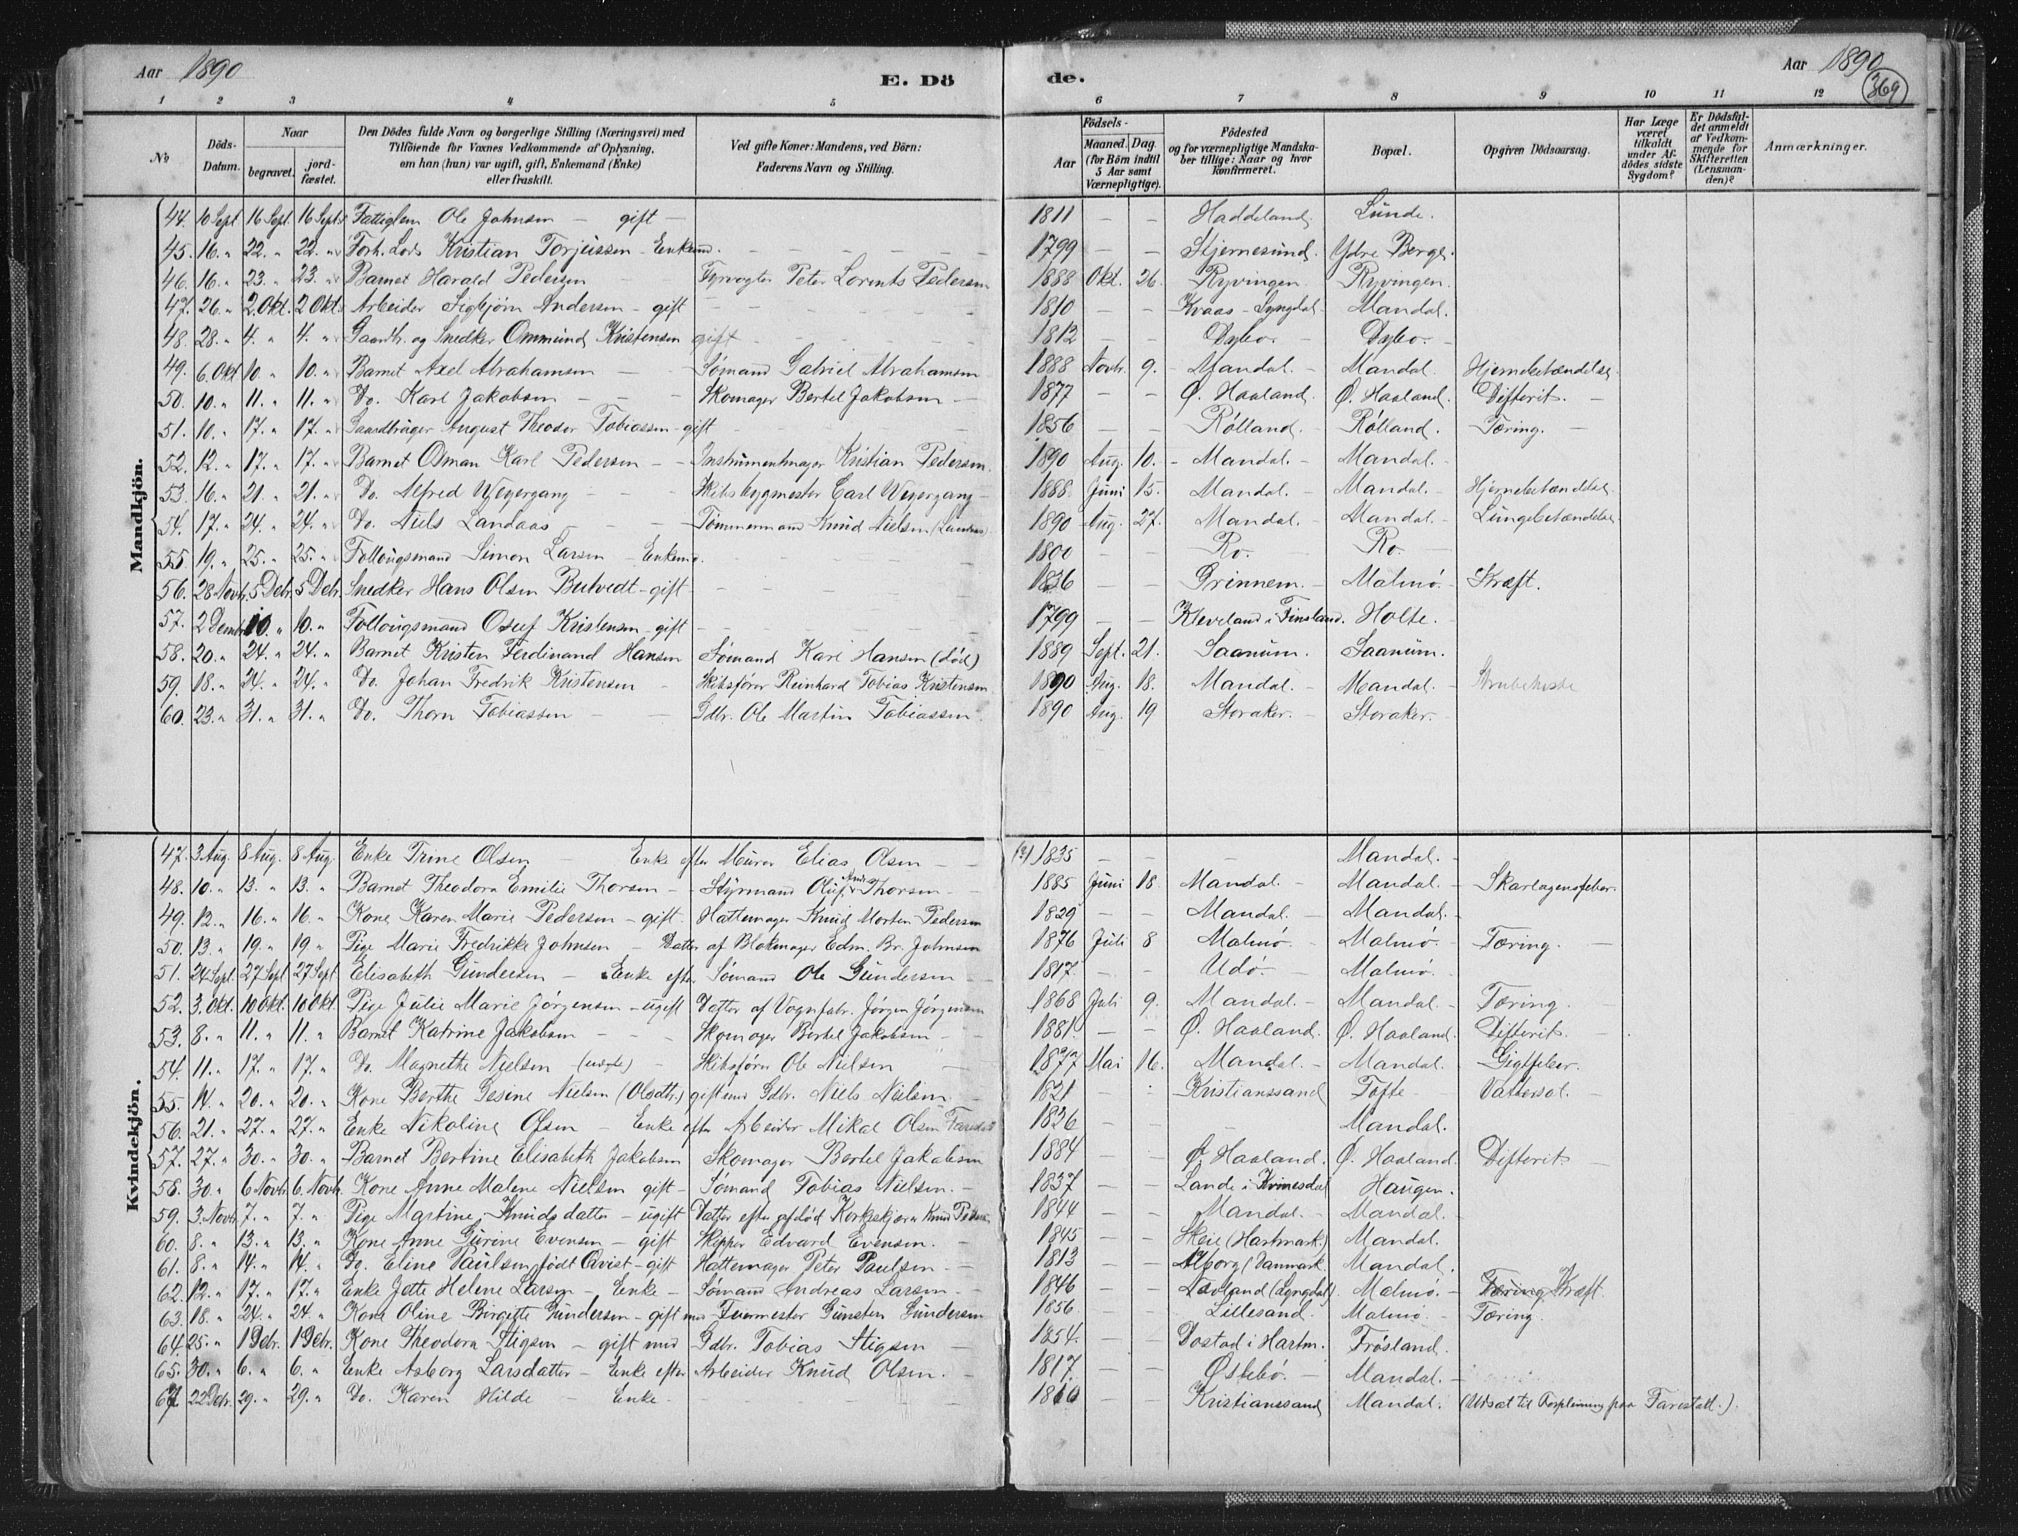 Aar 1890
E. Dö
de.
Aar 1890
369
1 2 3 4 5 6 7 8 9 10 11 12
No
Döds-Datum.
Naar
begravet.
jord-fæstet.
Den Dödes fulde Navn og borgerlige Stilling (Næringsvei) med Tilföiende for Voxnes Vedkommende af Oplysning, om han (hun) var ugift, gift, Enkemand (Enke) eller fraskilt.
Ved gifte Koner: Mandens, ved Börn: Faderens Navn og Stilling.
Födsels-
Aar
Maaned. Dag. (for Börn indtil 5 Aar samt Værnepligtige).
Födested og for værnepligtige Mandska-ber tillige: Naar og hvor konfirmeret.
Bopæl.
Opgiven Dödsaarsag.
Har Læge været tilkaldt under Af-dödes sidste Sygdom?
Er Dödsfal-det anmeldt af Vedkom-mende for Skifteretten (Lensman-den)?
Anmærkninger.
Mandkjön.
44. 10 Sept 16 Sept. 16 Sept. Ole Johnsen — gift — 1811 — — Haddeland. Lunde.
45. 16. " 22. " 22. " Forh. Lods Kristian Torjeissen – Enkem. — 1799 — — Stjernesund. Ydre Berge.
46. 16. " 23. " 23. " Barnet Harald Pedersen Fyrvogter Peter Lorents Pedersen 1888 Okt. 26. Ryvingen. Ryvingen.
47. 26. " 2. Okt. 2 Okt. Arbeider Sigbjørn Andersen – gift — 1810 — — Kvaas – Lyngdal – Mandal.
48. 28. " 4. " 4. " Gaardbr. og Snedker Ommund Kristensen gift — 1812 — — Dybo. Dybo.
49. 6. Okt 10. " 10. " Barnet Axel Abrahamsen — Sømand Gabriel Abrahamsen 1888 Novbr. 9. Mandal. – Mandal. Hjernebetændelse
50. 10. " 11. " 11. " Do. Karl Jakobsen — Skomager Bertel Jakobsen — 1877 — — Ø. Haaland. Ø. Haaland. Difterit. —
51. 10. " 17. " 17. " Gaardbruger August Theodor Tobiassen – gift — 1856 — — Rølland. – Rølland. Tæring. —
52. 12. " 17. " 17. " Barnet Osman Karl Pedersen — Instrumentmager Kristian Pedersen. 1890 Aug. 10. – Mandal. – Mandal.
53. 16. " 21. " 21. " Do. Alfred Wegergang — Skibsbygmester Carl Wegergang – 1888 Juni 15. Mandal. – Mandal. – Hjernebetændelse.
54. 17. " 24. " 24. " Do. Niels Landaas — Tømmermand Knud Nielsen (Landaas) 1890 Aug. 27. Mandal. – Mandal. – Lungebetændelse
55. 19. " 25. " 25. " Follougsmand Simon Larsen – Enkem. — 1800 — — Ro. — Ro. —
56. 28 Novbr. 5 Debr. 5 Debr. Snedker Hans Olsen Butvedt – gift — 1836 — — Grinnem. – Malmø. – Kræft.
57. 2 Dembr. 10. " 10. " Follougsmand Osuf Kristensen – gift — 1799 — — Kleveland i Finsland. Holte.
58. 20. " 24. " 24. " Barnet Kristen Ferdinand Hansen Sømand Karl Hansen (død) 1889 Sept. 21. Saanum. – Saanum.
59. 18. " 24. " 24. " Do. Johan Fredrik Kristensen — Skibsfører Reinhard Tobias Kristensen 1890 Aug. 18. – Mandal. – Mandal. – Strubehoste
60. 23. " 31. " 31. " Do. Thorn Tobiassen — Gdbr. Ole Martin Tobiassen. 1890 Aug. 19 Storaker. – Storaker. –
Kvindekjön.
47. 3 Aug. 8 Aug. 8 Aug. Enke Trine Olsen — Enke efter Murer Elias Olsen — (?) 1835 — — — Mandal. –
48. 10. " 13. " 13. " Barnet Theodora Emilie Thorsen – Styrmand Oluf Thorsen – 1885 Juni 18. Mandal. – Mandal. – Skarlagensfeber.
49. 12. " 16. " 16. " Kone Karen Marie Pedersen – gift. Hattemager Knud Morten Pedersen 1829 — — Mandal. – Mandal. –
50. 13. " 19. " 19. " Pige Marie Fredrikke Johnsen – Datter af Blokmager Edm. Br. Johnsen 1876 Juli 8 Malmø. – Malmø. – Tæring. —
51. 24 Sept. 27 Sept 27 Sept. Elisabeth Gundersen – Enke efter Sømand Ole Gundersen – 1817. — — Udø. – Malmø.
52. 3. Okt. 10 Okt. 10 Okt. Pige Julie Marie Jørgensen – ugift Datter af Vognfabr. Jørgen Jørgensen 1868 Juli 9. Mandal. – Mandal. – Tæring.
53. 8. " 11. " 11. " Barnet Katrine Jakobsen — Skomager Bertel Jakobsen – 1881. — — Ø. Haaland. Ø. Haaland. Difterit.
54. 11. " 17. " 17. " Do. Magnethe Nielsen — Skibsfører Ole Nielsen 1877 Mai 16. Mandal. – Mandal. – Gigtfeber.
55. 14. " 20. " 20. " Kone Berthe Gesine Nielsen (Olsdtr.) gift med Gdbr. Niels Nielsen. – 1821 — — Kristianssand Tofte – Vattersot. –
56. 21. " 27. " 27. " Enke Nikoline Olsen – Enke efter Arbeider Mikal Olsen 1836 — — — Mandal.
57. 27. " 30. " 30. " Barnet Bertine Elisabeth Jakobsen Skomager Bertel Jakobsen 1884 — — Ø. Haaland. Ø. Haaland. Difterit –
58. 30. " 6 Novbr. 6. Novbr. Kone Anne Malene Nielsen gift – Sømand Tobias Nielsen. – 1837 — — Lande i Kvinesdal Haugen.
59. 3. Novbr 7. " 7. " Pige Martine Knudsdatter – ugift Datter efter Knud 1844 — — Mandal – Mandal. –
60. 8. " 13. " 13. " Kone Anne Gurine Evensen – gift Skipper Edvard Evensen. – 1845 — — Skeie (Hartmark.) Mandal.
61. 8. " 14. " 14. " Do. Eline Paulsen født Qvist – gift Hattemager Peter Paulsen. – 1813 — — Alborg (Danmark. Mandal.
62. 12. " 17. " 17. " Enke Jette Helene Larsen – Enke – Sømand Andreas Larsen. – 1846 — — (Lyngdal). Malmø – Tæring Kræft.
63. 18. " 24. " 24. " Kone Oline Birgitte Gundersen – gift med Gunsten Gundersen 1856 — — Lillesand. Malmø. – Tæring.
64. 25. " 1 Debr. 1 Debr. Kone Theodora Stigsen – gift med Gdbr. Tobias Stigsen – 1854. — — Dostad i Hartm. Frøsland.
65. 30. " 6. " 6. " Enke Asborg Larsdatter – Enke efter Arbeider Knud Olsen. – 1817. — — Østebø. – Mandal. –
67 22 Debr. 29. " 29. " Do. Karen Hilde — Enke. — — Kristianssand Mandal. (Udsat til Forpleining paa Farestad.).